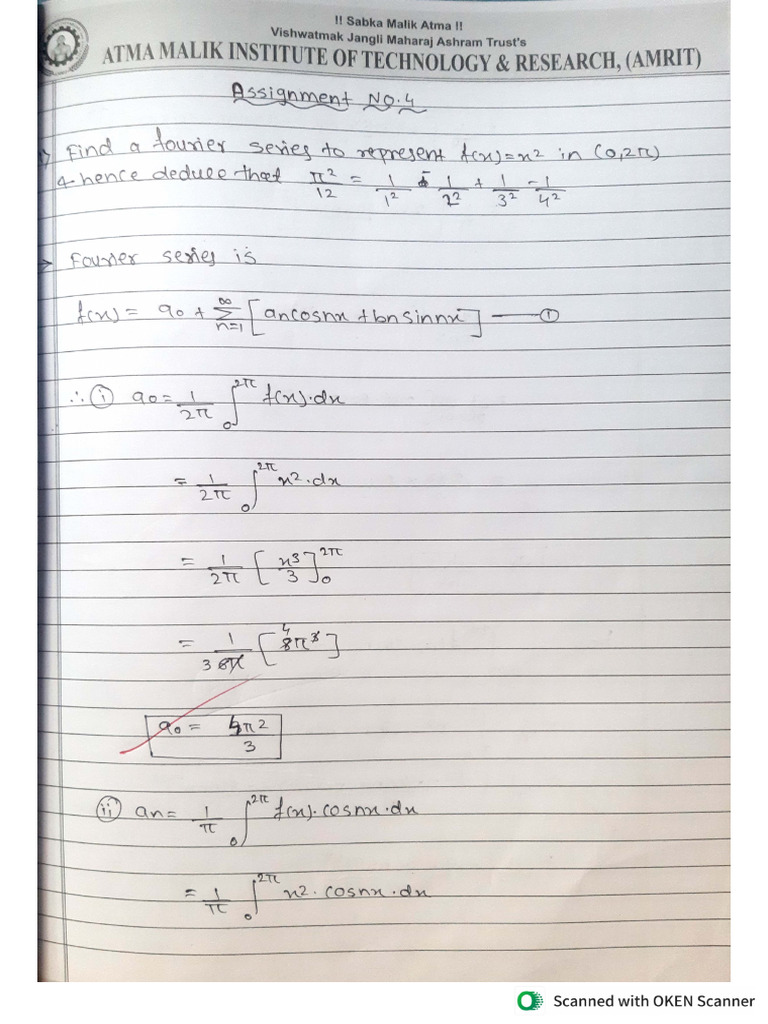 !! Sabka Malik Atma !!
Vishwatmak Jangli Maharaj Ashram Trust's
ATMA MALIK INSTITUTE OF TECHNOLOGY & RESEARCH, (AMRIT)
Assignment NO.4
1) Find a fourier series to represent f(x)=x² in (0,2π)
& hence deduce that π²/12 = 1/1² - 1/2² + 1/3² - 1/4²
→ Fourier series is
f(x) = a₀ + ∑_{n=1}^{∞} [an cosnx + bn sinnx] —— ①
∴ ⓘ a₀ = 1/2π ∫₀^{2π} f(x)·dx
= 1/2π ∫₀^{2π} x²·dx
= 1/2π [x³/3]₀^{2π}
= 1/(3 6π) [4 8π³]
a₀ = 4π²/3
ⓘⓘ an = 1/π ∫₀^{2π} f(x)·cosnx·dx
= 1/π ∫₀^{2π} x²·cosnx·dx
Scanned with OKEN Scanner